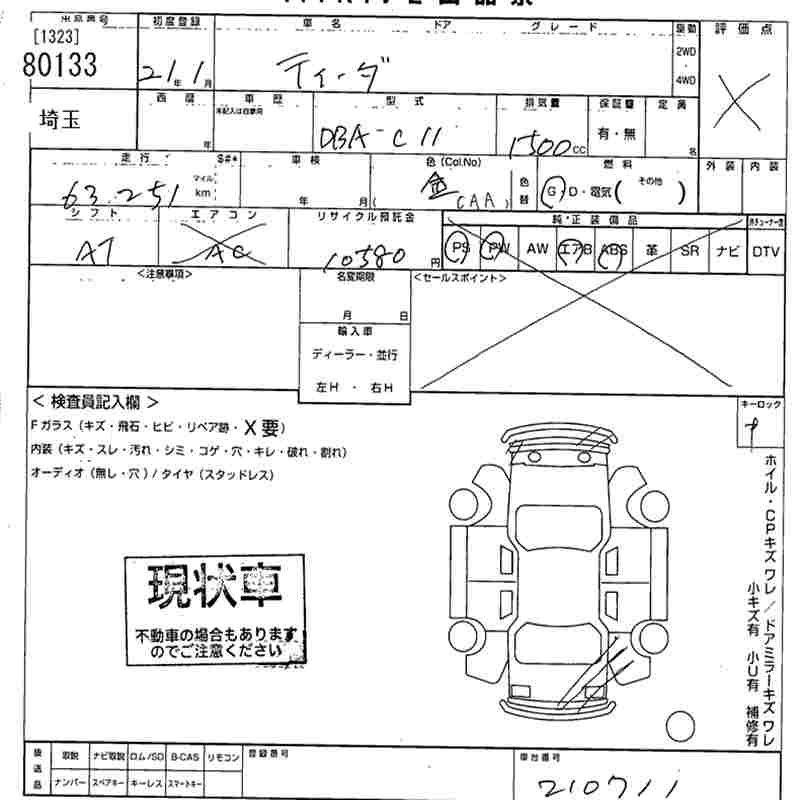 初度登録 車名 ドア グレード 駆動 評価点
[1323]
80133
21年 1月 ティーダ 2WD・4WD
埼玉
西暦 車歴 型式 排気量 保証書 定員
年 未記入は自家用 DBA-C11 1500cc 有・無 名
走行 S#* 車検 色(Col.No) 燃料 外装 内装
63,251 マイル km 年 月 金(CAA) 色替 G・D・電気( その他 )
シフト エアコン リサイクル預託金 純・正装備品
AT AC 10380円 PS PW AW エアB ABS 革 SR ナビ DTV
<注意事項> 名変期限 <セールスポイント>
月 日
輸入車
ディーラー・並行
左H ・ 右H
<検査員記入欄> キーロック
Fガラス(キズ・飛石・ヒビ・リペア跡・X要)
内装(キズ・スレ・汚れ・シミ・コゲ・穴・キレ・破れ・割れ)
オーディオ(無し・穴)/タイヤ(スタッドレス)
ホイル・CPキズワレ/ドアミラーキズワレ
小キズ有 小U有 補修有
現状車
不動車の場合もあります
のでご注意ください
後送品 取説 ナビ取説 ロム/SD B-CAS リモコン 登録番号 車台番号
ナンバー スペアキー キーレス スマートキー 210711